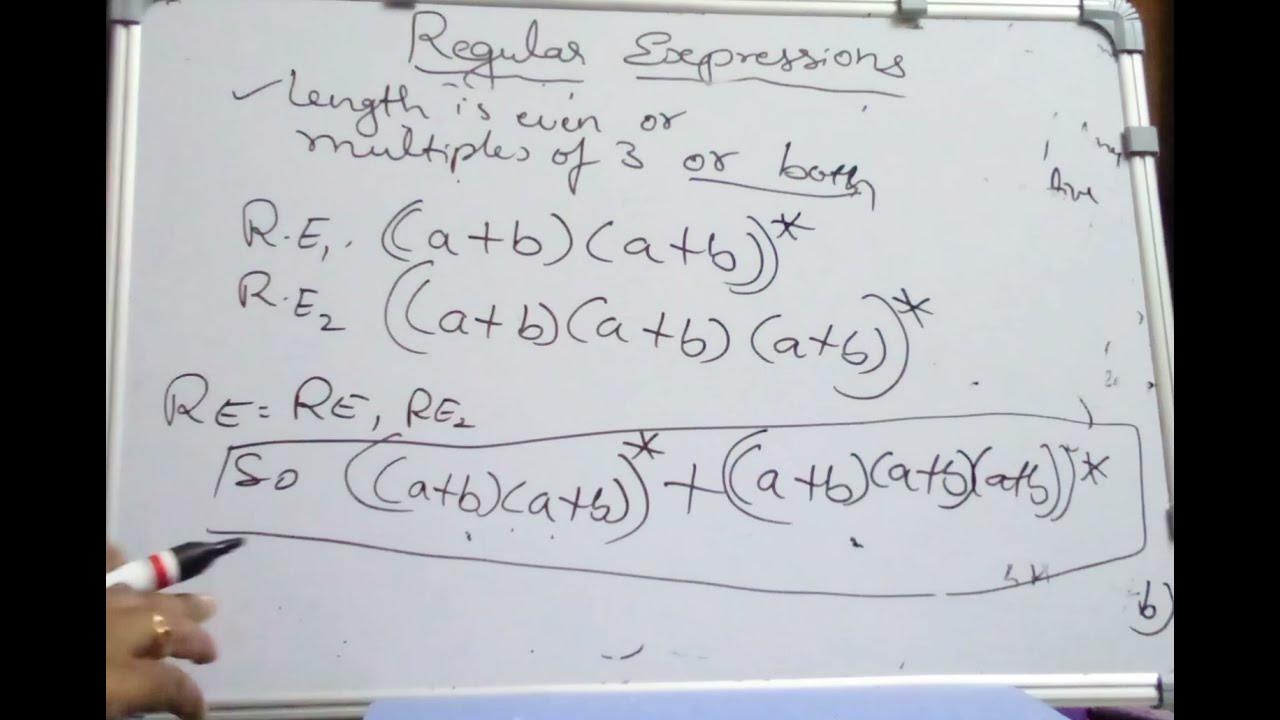 Regular Expressions
✓ Length is even or
multiples of 3 or both
R.E₁. ((a+b)(a+b))*
R.E₂ ((a+b)(a+b)(a+b))*
RE = RE₁ RE₂
So ((a+b)(a+b))* + ((a+b)(a+b)(a+b))*
b)